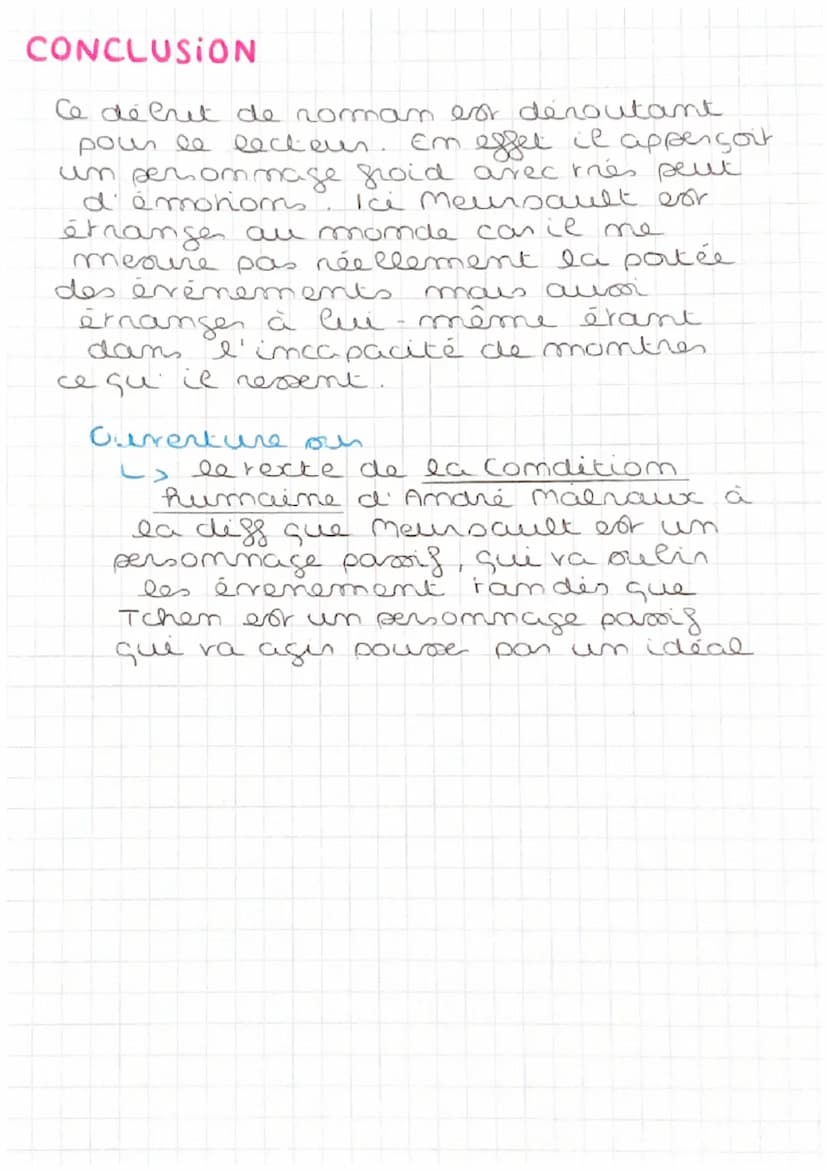 CONCLUSION
Ce début de roman est déroutant
pour le lecteur. En effet il apperçoit
un personnage froid avec très peut
d'émotions. Ici Meursault est
étranger au monde car il ne
mesure pas réellement la portée
des évènements mais aussi
étranger à lui-même étant
dans l'incapacité de montrer
ce qu'il ressent.
Ouverture sur
↳ le texte de la Condition
humaine d'André Malraux à
la diff que Meursault est un
personnage passif, qui va subir
les évenement tandis que
Tchen est un personnage passif
qui va agir pousse par un idéal